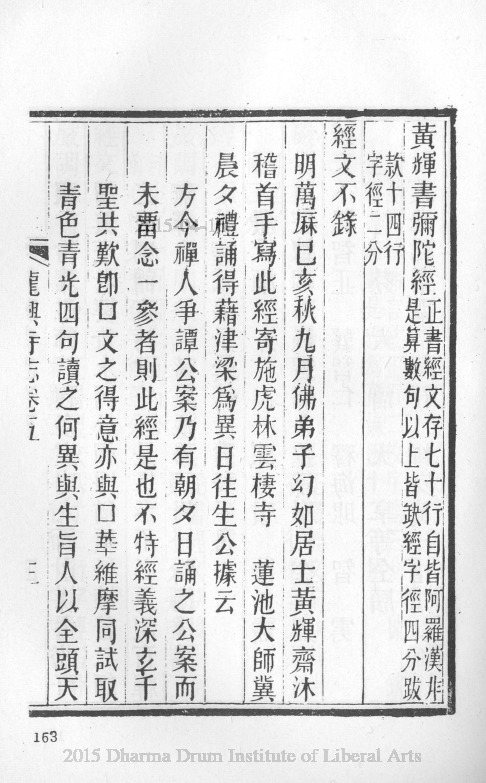 黃輝書彌陀經正書經文存七十行自皆阿羅漢非
是算數句以上皆缺經字徑四分跋
款十四行
字徑二分
經文不錄
明萬厤己亥秋九月佛弟子幻如居士黃輝齋沐
稽首手寫此經寄施虎林雲棲寺 蓮池大師冀
晨夕禮誦得藉津梁爲異日往生公據云
方今禪人爭譚公案乃有朝夕日誦之公案而
未畱念一參者則此經是也不特經義深玄千
聖共歎卽口文之得意亦與口華維摩同試取
青色青光四句讀之何異與生旨人以全頭天
龍興寺志卷五
163
2015 Dharma Drum Institute of Liberal Arts